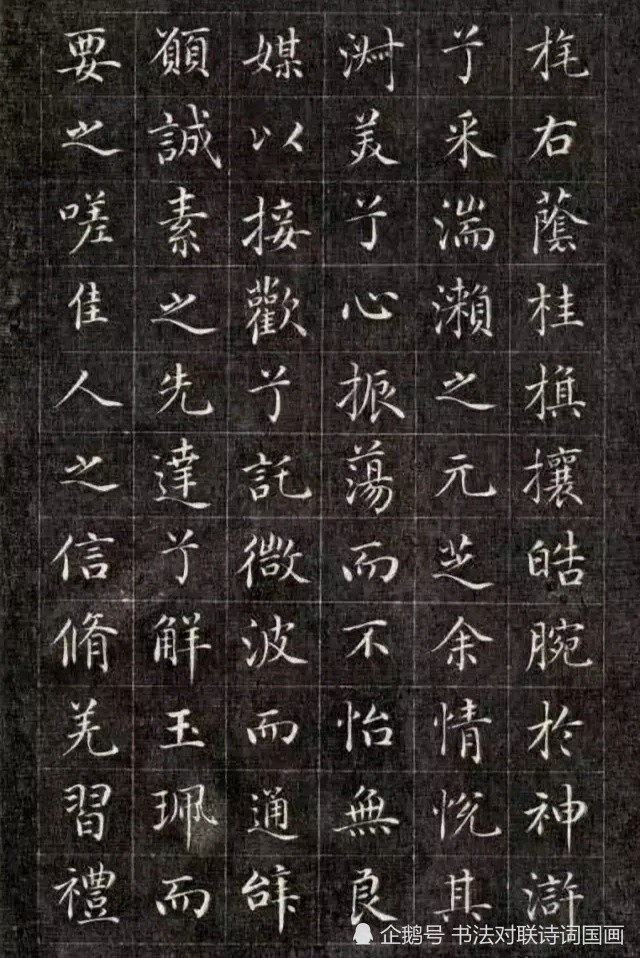 旄右蔭桂旗攘皓腕於神滸
兮采湍瀨之元芝余情悅其
淑美兮心振蕩而不怡無良
媒以接歡兮託微波而通辭
願誠素之先達兮解玉珮而
要之嗟佳人之信脩羌習禮
企鹅号 书法对联诗词国画